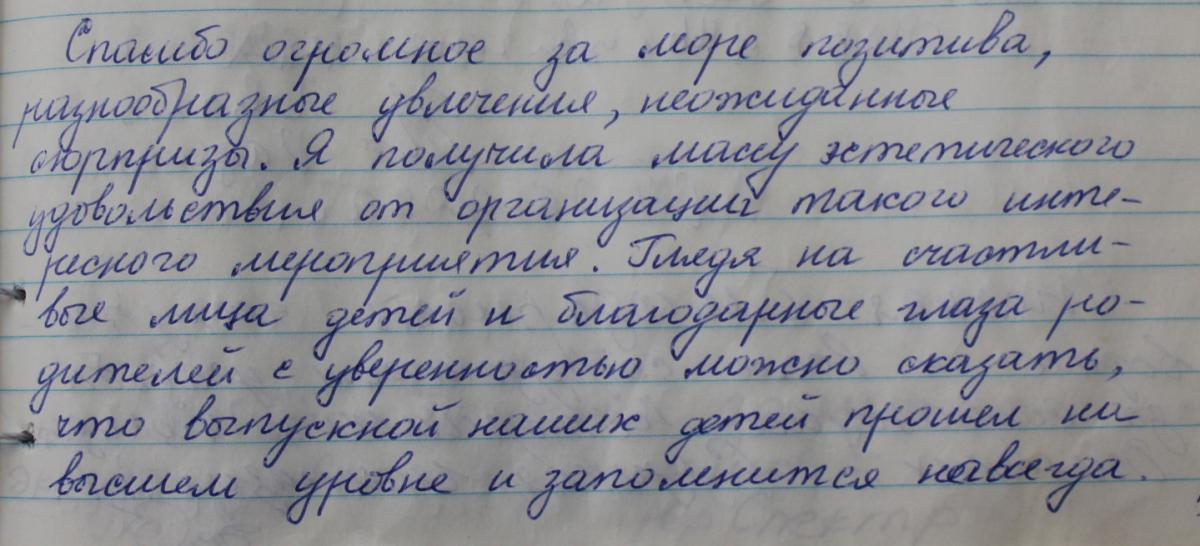 Спасибо огромное за море позитива,
разнообразные увлечения, неожиданные
сюрпризы. Я получила массу эстетического
удовольствия от организации такого инте-
ресного мероприятия. Глядя на счастли-
вые лица детей и благодарные глаза ро-
дителей с уверенностью можно сказать,
что выпускной наших детей прошел на
высшем уровне и запомнится навсегда.